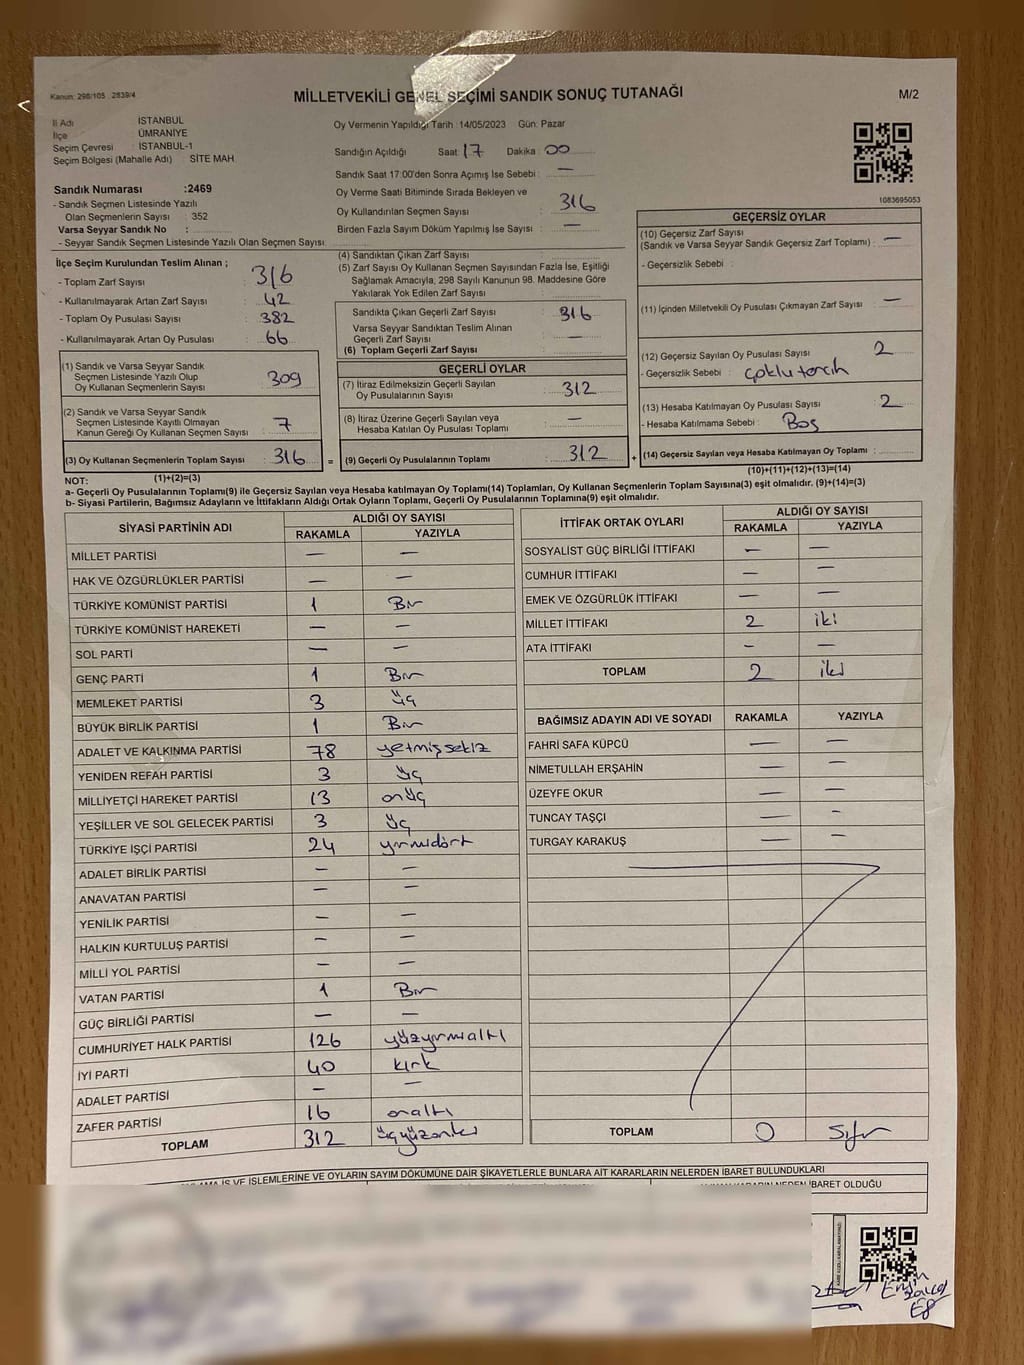 Kanun: 298/105 . 2839/4
MİLLETVEKİLİ GENEL SEÇİMİ SANDIK SONUÇ TUTANAĞI
M/2
İl Adı İSTANBUL
İlçe ÜMRANİYE
Seçim Çevresi : İSTANBUL-1
Seçim Bölgesi (Mahalle Adı) : SİTE MAH.
Sandık Numarası :2469
- Sandık Seçmen Listesinde Yazılı
Olan Seçmenlerin Sayısı : 352
Varsa Seyyar Sandık No :
- Seyyar Sandık Seçmen Listesinde Yazılı Olan Seçmen Sayısı:
Oy Vermenin Yapıldığı Tarih : 14/05/2023 Gün: Pazar
Sandığın Açıldığı Saat: 17 Dakika : 00
Sandık Saat 17:00'den Sonra Açımış İse Sebebi : —
Oy Verme Saati Bitiminde Sırada Bekleyen ve
Oy Kullandırılan Seçmen Sayısı : 316
Birden Fazla Sayım Döküm Yapılmış İse Sayısı : —
1083695053
İlçe Seçim Kurulundan Teslim Alınan ;
- Toplam Zarf Sayısı : 316
- Kullanılmayarak Artan Zarf Sayısı : 42
- Toplam Oy Pusulası Sayısı : 382
- Kullanılmayarak Artan Oy Pusulası : 66
(1) Sandık ve Varsa Seyyar Sandık
Seçmen Listesinde Yazılı Olup
Oy Kullanan Seçmenlerin Sayısı : 309
(2) Sandık ve Varsa Seyyar Sandık
Seçmen Listesinde Kayıtlı Olmayan
Kanun Gereği Oy Kullanan Seçmen Sayısı : 7
(3) Oy Kullanan Seçmenlerin Toplam Sayısı : 316
(1)+(2)=(3)
(4) Sandıktan Çıkan Zarf Sayısı :
(5) Zarf Sayısı Oy Kullanan Seçmen Sayısından Fazla İse, Eşitliği
Sağlamak Amacıyla, 298 Sayılı Kanunun 98. Maddesine Göre
Yakılarak Yok Edilen Zarf Sayısı :
Sandıkta Çıkan Geçerli Zarf Sayısı : 316
Varsa Seyyar Sandıktan Teslim Alınan
Geçerli Zarf Sayısı : —
(6) Toplam Geçerli Zarf Sayısı :
GEÇERLİ OYLAR
(7) İtiraz Edilmeksizin Geçerli Sayılan
Oy Pusulalarının Sayısı : 312
(8) İtiraz Üzerine Geçerli Sayılan veya
Hesaba Katılan Oy Pusulası Toplamı : —
= (9) Geçerli Oy Pusulalarının Toplamı : 312
GEÇERSİZ OYLAR
(10) Geçersiz Zarf Sayısı
(Sandık ve Varsa Seyyar Sandık Geçersiz Zarf Toplamı) : —
- Geçersizlik Sebebi :
(11) İçinden Milletvekili Oy Pusulası Çıkmayan Zarf Sayısı : —
(12) Geçersiz Sayılan Oy Pusulası Sayısı : 2
- Geçersizlik Sebebi : çoklu tercih
(13) Hesaba Katılmayan Oy Pusulası Sayısı : 2
- Hesaba Katılmama Sebebi : Boş
+ (14) Geçersiz Sayılan veya Hesaba Katılmayan Oy Toplamı :
(10)+(11)+(12)+(13)=(14)
NOT:
a- Geçerli Oy Pusulalarının Toplamı(9) ile Geçersiz Sayılan veya Hesaba katılmayan Oy Toplamı(14) Toplamları, Oy Kullanan Seçmenlerin Toplam Sayısına(3) eşit olmalıdır. (9)+(14)=(3)
b- Siyasi Partilerin, Bağımsız Adayların ve İttifakların Aldığı Ortak Oyların Toplamı, Geçerli Oy Pusulalarının Toplamına(9) eşit olmalıdır.
SİYASİ PARTİNİN ADI ALDIĞI OY SAYISI
RAKAMLA YAZIYLA
MİLLET PARTİSİ — —
HAK VE ÖZGÜRLÜKLER PARTİSİ — —
TÜRKİYE KOMÜNİST PARTİSİ 1 Bir
TÜRKİYE KOMÜNİST HAREKETİ — —
SOL PARTİ — —
GENÇ PARTİ 1 Bir
MEMLEKET PARTİSİ 3 üç
BÜYÜK BİRLİK PARTİSİ 1 Bir
ADALET VE KALKINMA PARTİSİ 78 yetmişsekiz
YENİDEN REFAH PARTİSİ 3 üç
MİLLİYETÇİ HAREKET PARTİSİ 13 onüç
YEŞİLLER VE SOL GELECEK PARTİSİ 3 üç
TÜRKİYE İŞÇİ PARTİSİ 24 yirmidört
ADALET BİRLİK PARTİSİ — —
ANAVATAN PARTİSİ — —
YENİLİK PARTİSİ — —
HALKIN KURTULUŞ PARTİSİ — —
MİLLİ YOL PARTİSİ — —
VATAN PARTİSİ 1 Bir
GÜÇ BİRLİĞİ PARTİSİ — —
CUMHURİYET HALK PARTİSİ 126 yüzyirmialtı
İYİ PARTİ 40 kırk
ADALET PARTİSİ — —
ZAFER PARTİSİ 16 onaltı
TOPLAM 312 üçyüzoniki
İTTİFAK ORTAK OYLARI ALDIĞI OY SAYISI
RAKAMLA YAZIYLA
SOSYALİST GÜÇ BİRLİĞİ İTTİFAKI — —
CUMHUR İTTİFAKI — —
EMEK VE ÖZGÜRLÜK İTTİFAKI — —
MİLLET İTTİFAKI 2 iki
ATA İTTİFAKI — —
TOPLAM 2 iki
BAĞIMSIZ ADAYIN ADI VE SOYADI RAKAMLA YAZIYLA
FAHRİ SAFA KÜPCÜ — —
NİMETULLAH ERŞAHİN — —
ÜZEYFE OKUR — —
TUNCAY TAŞÇI — —
TURGAY KARAKUŞ — —
TOPLAM 0 Sıfır
İŞ VE İŞLEMLERİNE VE OYLARIN SAYIM DÖKÜMÜNE DAİR ŞİKAYETLERLE BUNLARA AİT KARARLARIN NELERDEN İBARET BULUNDUKLARI
İBARET OLDUĞU